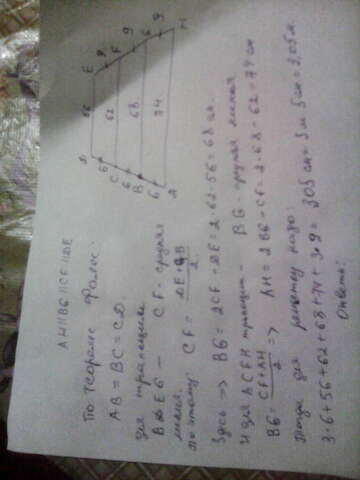 AH||BG||CF||DE
E
9
F
9
G
9
H
56
62
68
74
D
6
C
6
B
6
A
По теореме Фалес:
AB = BC = CD.
для трапеции
BDEG — CF - средняя
линия.
поэтому: CF = DE+GB / 2
Здесь => BG = 2CF - DE = 2·62-56 = 68 см.
И для ACFH трапеции - BG - средняя линия
BG = CF+AH / 2 => AH = 2BG - CF = 2·68-62 = 74 см
тогда для решетку надо:
3·6+56+62+68+74+3·9 = 305 см = 3м 5см = 3,05 м.
Ответ: